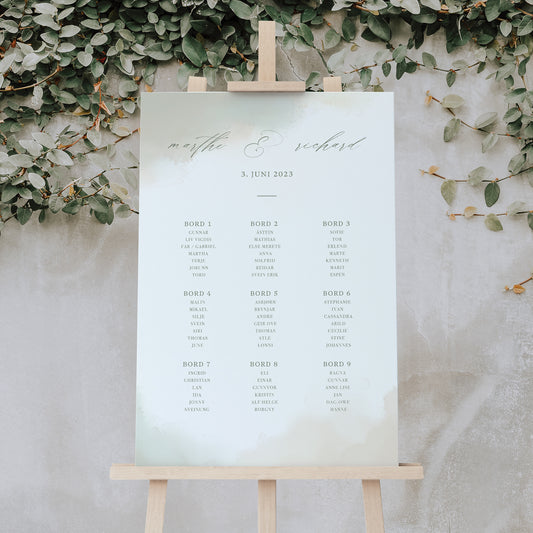 marthe & richard
3. JUNI 2023
BORD 1
GUNNAR
LIV VIGDIS
FAR / GABRIEL
MARTHA
TERJE
JORUNN
TORD
BORD 2
MATHIAS
ELSE MERETE
ANNA
SOLFRID
REIDAR
SVEIN ERIK
BORD 3
SOFIE
TOR
ERLEND
MARTE
KENNETH
MARIT
ESPEN
BORD 4
MALIN
MIKAEL
SILJE
SVEIN
SIRI
THOMAS
JUNE
BORD 5
ASBJØRN
BRYNJAR
ANDRE
GEIR OVE
THOMAS
ATLE
CONNI
BORD 6
STEPHANIE
IVAN
CASSANDRA
ARILD
CECILIE
STINE
JOHANNES
BORD 7
INGRID
CHRISTIAN
LAN
IDA
JONNY
SVEINUNG
BORD 8
ELI
EINAR
GUNNVOR
KRISTIN
ALF HELGE
BORGNY
BORD 9
RAGNA
GUNNAR
ANNE LISE
JAN
DAG OWE
HANNE